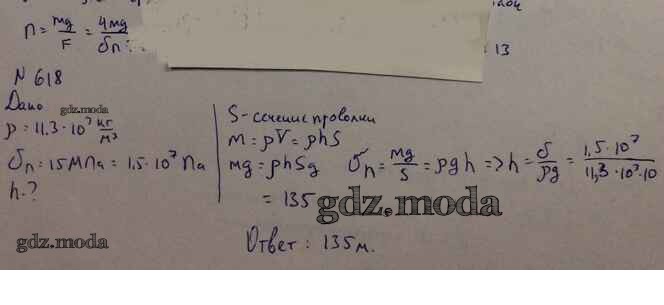 n = mg/F = 4mg/σn
13
N 618
Дано
gdz.moda
ρ = 11,3·10³ кг/м³
σп = 15 МПа = 1,5·10⁷ Па
h-?
S-сечение проволки
m = ρV = ρhS
mg = ρhSg σn = mg/S = ρgh => h = σ/ρg = 1,5·10⁷/11,3·10³·10
= 135
gdz.moda
gdz.moda
Ответ: 135м.